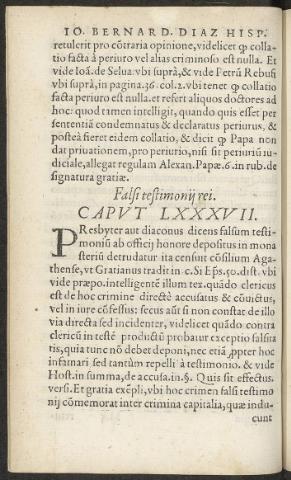 IO. BERNARD. DIAZ HISP.
retulerit pro cõtraria opinione, videlicet ꝙ colla-
tio facta à periuro vel alias criminoso est nulla. Et
vide Ioã. de Selua. vbi suprà, & vide Petrũ Rebuf.
vbi suprà, in pagina. 36. col. 2. vbi tenet ꝙ collatio
facta periuro est nulla. et refert aliquos doctores ad
hoc: quod tamen intelligit, quando quis esset per
sententiã condemnatus & declaratus periurus, &
posteà fieret eidem collatio, & dicit ꝙ Papa non
dat priuationem, pro periurio, nisi sit periuriũ iu-
diciale, allegat regulam Alexan. Papæ. 6. in rub. de
signatura gratiæ.
Falsi testimonij rei.
CAPVT LXXXVII.
PResbyter aut diaconus dicens falsum testi-
moniũ ab officij honore depositus in mona
steriũ detrudatur ita censuit cõsilium Aga-
thense, vt Gratianus tradit in c. Si Ep̃s. 50. dist. vbi
vide præpo. intelligentẽ illum tex. quãdo clericus
est de hoc crimine directè accusatus & cõuictus,
vel in iure cõfessus: secus aũt si non constat de illo
via directa sed incidenter, videlicet quãdo contra
clericũ in testẽ productũ probatur exceptio falsita
tis, quia tunc nõ debet deponi, nec etiã ꝓpter hoc
infamari sed tantùm repelli à testimonio. & vide
Host. in summa, de accusa. in. §. Quis sit effectus.
versi. Et gratia exẽpli, vbi hoc crimen falsi testimo
nij cõmemorat inter crimina capitalia, quæ indu-
cunt